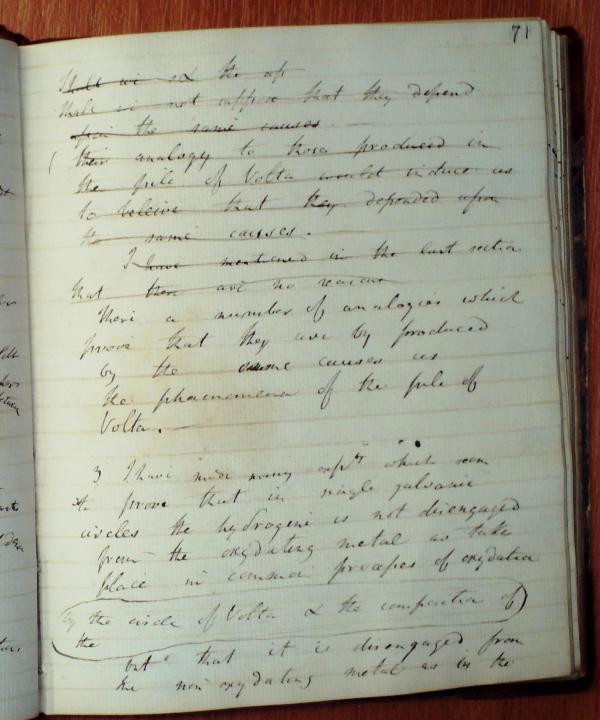 71
Shall we & the op
Shall we not suppose that they depend
upon the same causes
( their analogy to those produced in
the pile of Volta would induce us
to beleive that they depended upon
the same causes.
I have mentioned in the last section
that there are no reasons
There a number of analogies which
prove that they are by produced
by the same causes as
the phaenomena of the pile of
Volta. —
3 I have made many expts which seem
to prove that in single galvanic
circles the hydrogene is not disengaged
from the oxydating metal as take
place in common processes of oxydation
by the circle of Volta & the composition of
the
but that it is disengaged from
the non oxydating metal as in the